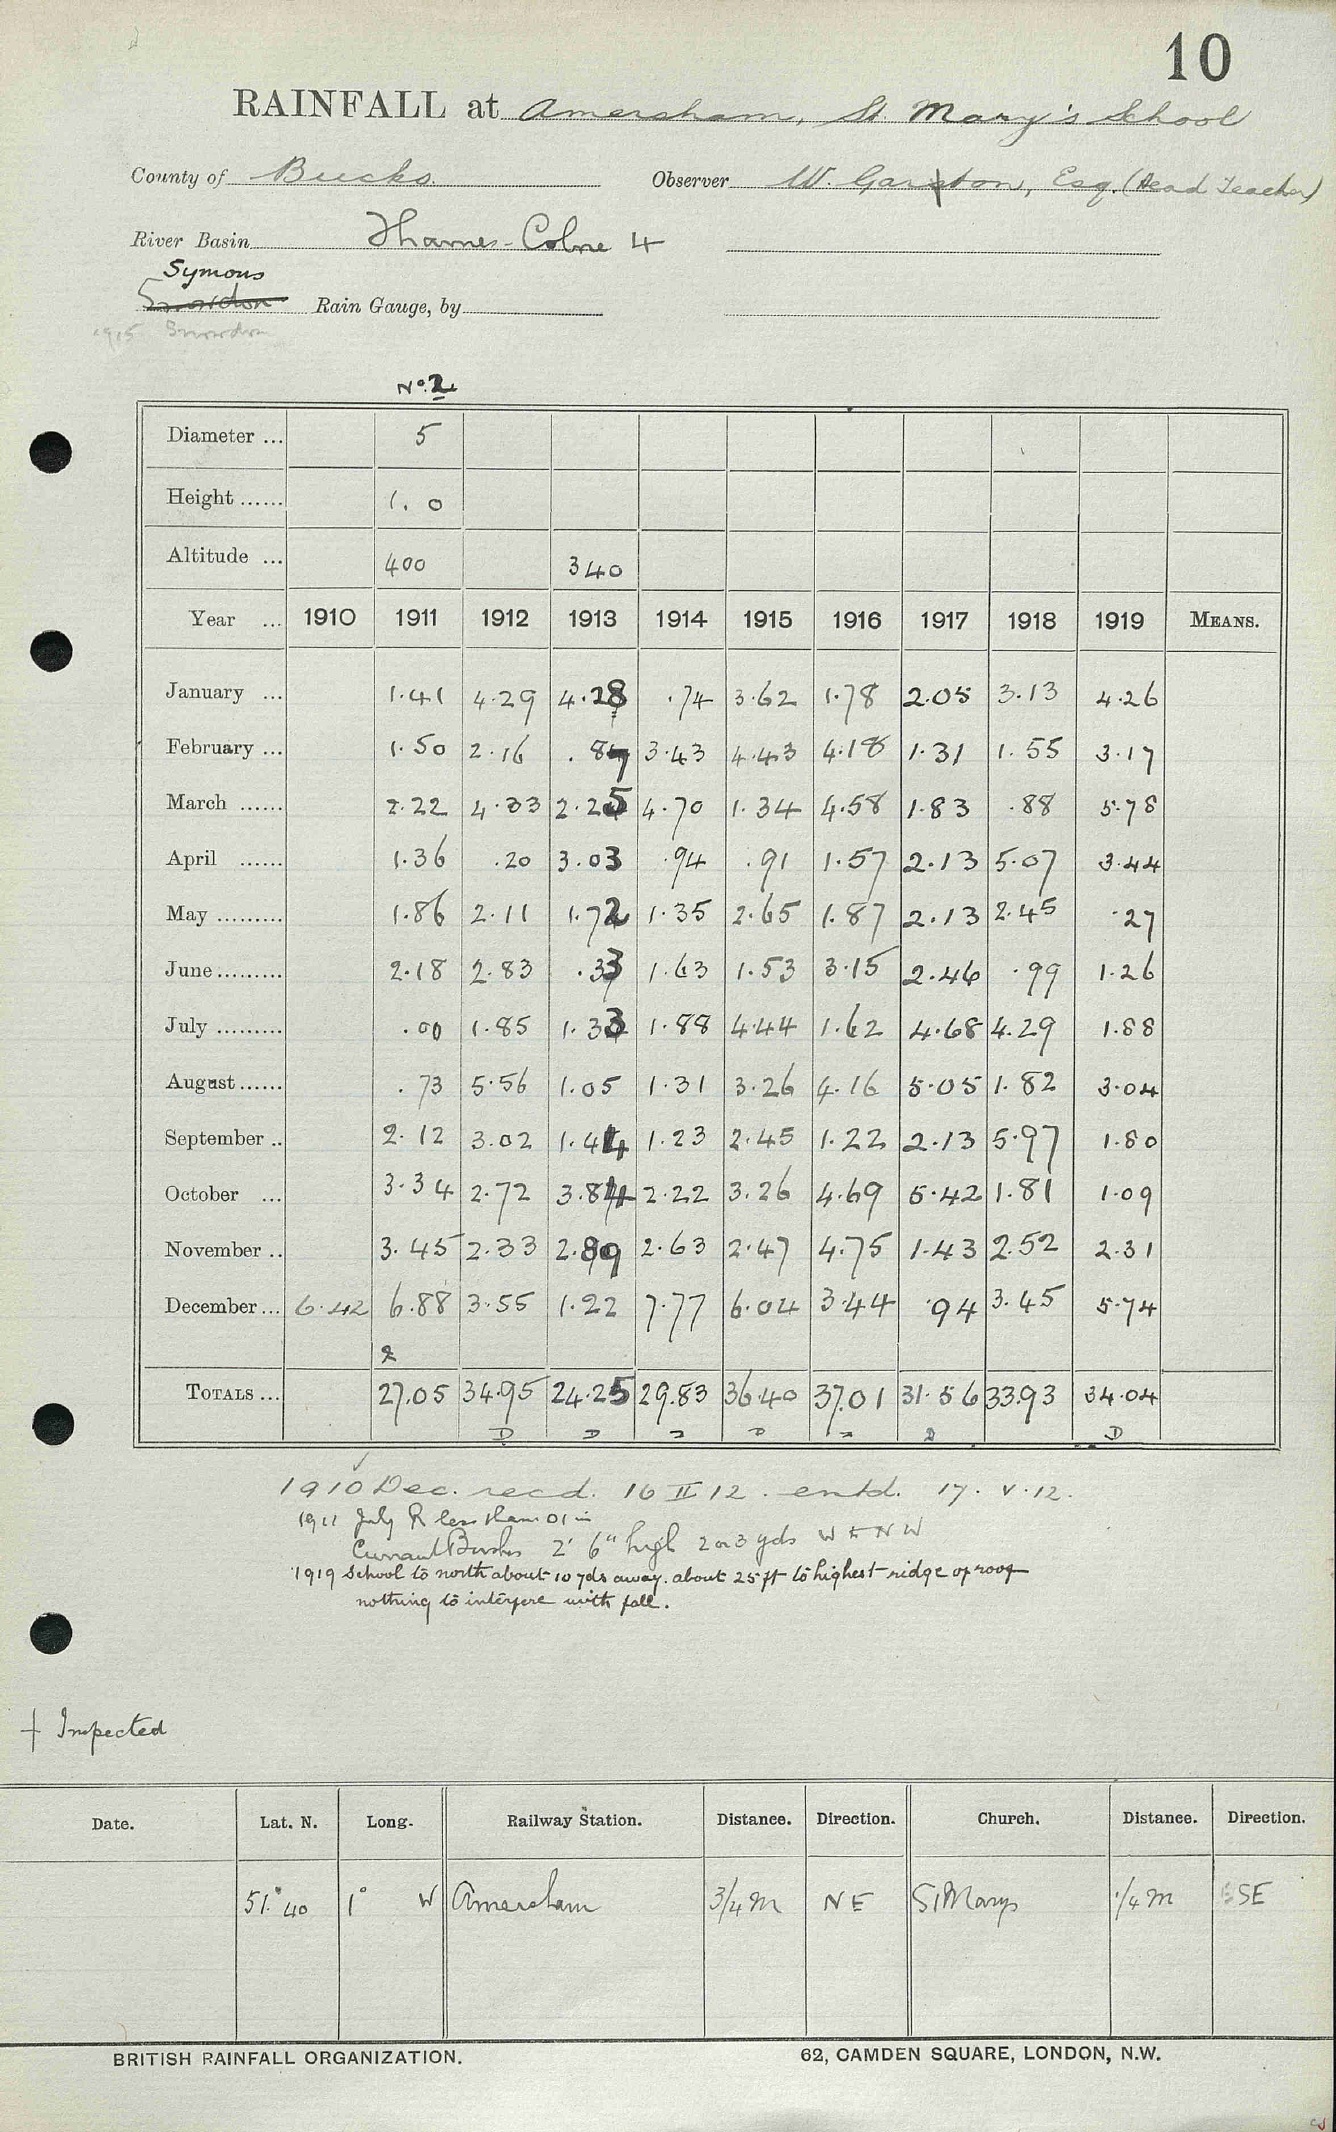 10
RAINFALL at Amersham, St. Mary's School
County of Bucks. Observer W. Garston, Esq. (Head Teacher)
River Basin Thames-Colne 4
Symons
Snowdon Rain Gauge, by
1915 Snowdon
No. 2
Diameter ... 5
Height ...... 1. 0
Altitude ... 400 340
Year ... 1910 1911 1912 1913 1914 1915 1916 1917 1918 1919 MEANS.
January ... 1.41 4.29 4.28 .74 3.62 1.78 2.05 3.13 4.26
February ... 1.50 2.16 .87 3.43 4.43 4.18 1.31 1.55 3.17
March ...... 2.22 4.33 2.25 4.70 1.34 4.58 1.83 .88 5.78
April ...... 1.36 .20 3.03 .94 .91 1.57 2.13 5.07 3.44
May ......... 1.86 2.11 1.72 1.35 2.65 1.87 2.13 2.45 .27
June ......... 2.18 2.83 .33 1.63 1.53 3.15 2.46 .99 1.26
July ......... .00 1.85 1.33 1.88 4.44 1.62 4.68 4.29 1.88
August ...... .73 5.56 1.05 1.31 3.26 4.16 5.05 1.82 3.04
September .. 2.12 3.02 1.44 1.23 2.45 1.22 2.13 5.97 1.80
October ... 3.34 2.72 3.84 2.22 3.26 4.69 5.42 1.81 1.09
November .. 3.45 2.33 2.89 2.63 2.47 4.75 1.43 2.52 2.31
December ... 6.42 6.88 3.55 1.22 7.77 6.04 3.44 .94 3.45 5.74
2
TOTALS ... 27.05 34.95 24.25 29.83 36.40 37.01 31.56 33.93 34.04
D D D D
1910 Dec. recd. 16 II 12. entd. 17. V. 12.
1911 July R less than 01 in
Currant Bushes 2' 6" high 2 or 3 yds W & NW
1919 School to north about 10 yds away. about 25 ft to highest ridge of roof
nothing to interfere with fall.
† Inspected
Date. Lat. N. Long. Railway Station. Distance. Direction. Church. Distance. Direction.
51° 40 1° W Amersham 3/4 M NE St Marys 1/4 M SSE
BRITISH RAINFALL ORGANIZATION. 62, CAMDEN SQUARE, LONDON, N.W.